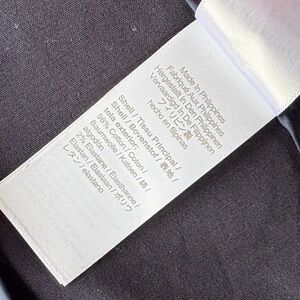 Made In Philippines
Fabriqué Aux Philippines
Hergestellt In Den Philippinen
Vervaardigd In De Filippijnen
フィリピン製
hecho en filipinas
Shell / Tissu Principal /
Shell / Bovenstof / 表地 /
tela exterior:
98% Cotton / Coton /
Baumwolle / Katoen / 綿 /
algodon
2% Elastane / Elasthanne /
Elastan / Elastaan / ポリウ
レタン / elastano